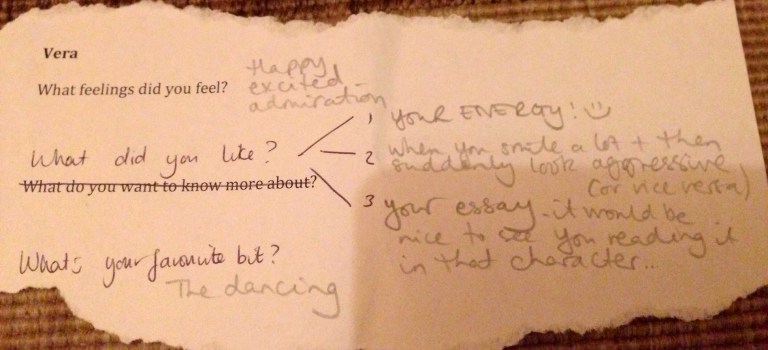 Vera
What feelings did you feel?
Happy
excited
admiration
What did you like?
What do you want to know more about?
1 your ENERGY!
2 when you smile a lot + then
suddenly look aggressive
(or vice versa)
3 your essay - it would be
nice to see you reading it
in that character...
What's your favourite bit?
The dancing